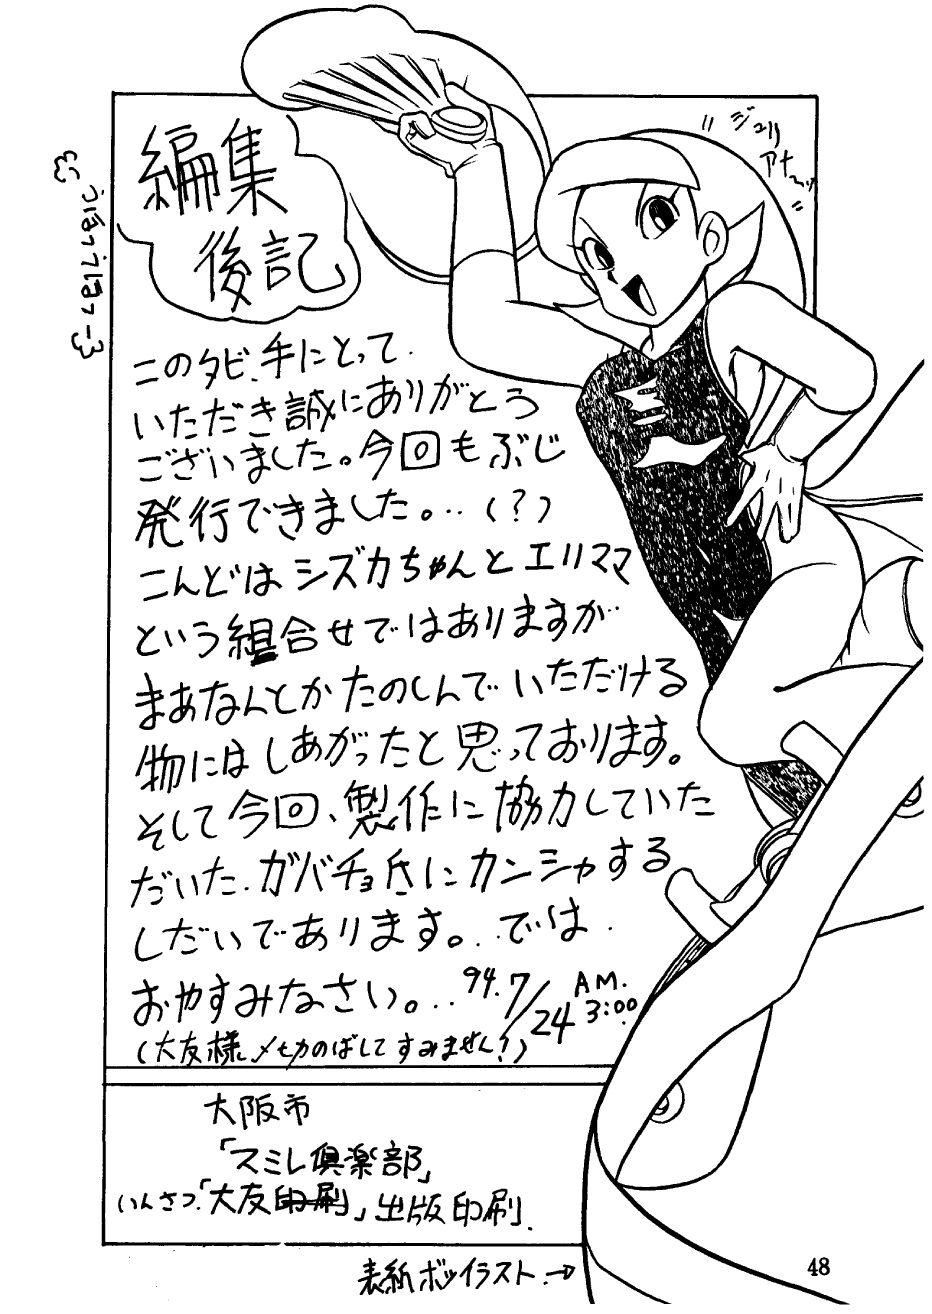 編集
後記
うほっうほっ
"ジュリ
アナ〜"
このタビ、手にとって
いただき誠にありがとう
ございました。今回もぶじ
発行できました。‥(?)
こんどはシズカちゃんとエリママ
という組合せではありますが
まあなんとかたのしんでいただける
物にはしあがったと思っております。
そして今回、製作に協力していた
だいた、ガバチョ氏にカンシャする
しだいであります。‥では
おやすみなさい。‥'94.7/24 AM.3:00
(大友様、〆切のばしてすみません!)
大阪市
「スミレ倶楽部」
いんさつ.「大友印刷」出版印刷.
表紙ボツイラスト.→
48